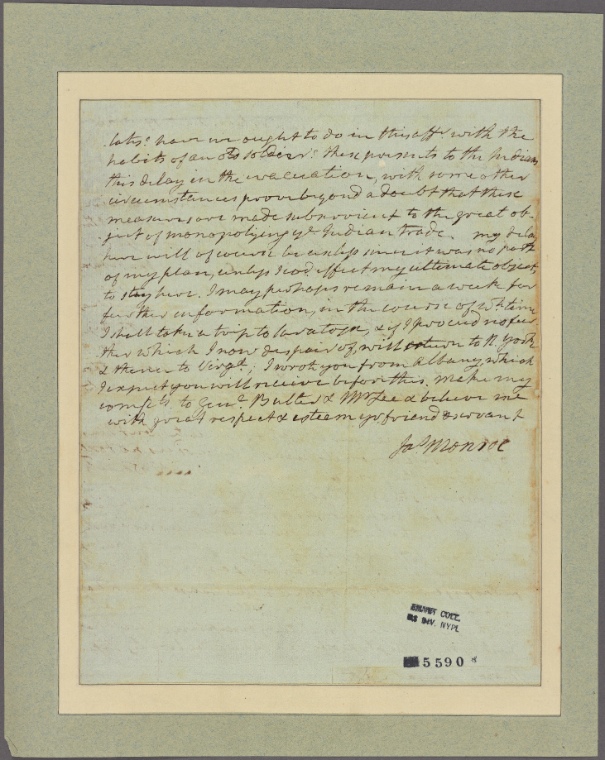 have we ought to do in this aff.r with the
habits of an old soldier? these presents to the Indians
this delay in the evacuation, with some other
circumstances prove beyond a doubt that these
measures are made subservient to the great ob-
ject of monopolizing ye Indian trade. my delay
here will of course be useless since it was no part
of my plan, unless I co.d effect my ultimate object,
to stay here. I may perhaps remain a week for
further information, in the course of wh. time
I shall take a trip to Saratoga, & if I proceed no fur-
ther which I now despair of, will return to N. York
& thence to Virg.a; I wrote you from Albany which
I expect you will receive before this. Make my
comp.ts to Gen.l & Mr Lee & believe me
with great respect & esteem yr friend & servant
Ja.s Monroe
EMMET COLL.
MS DIV. NYPL
5590